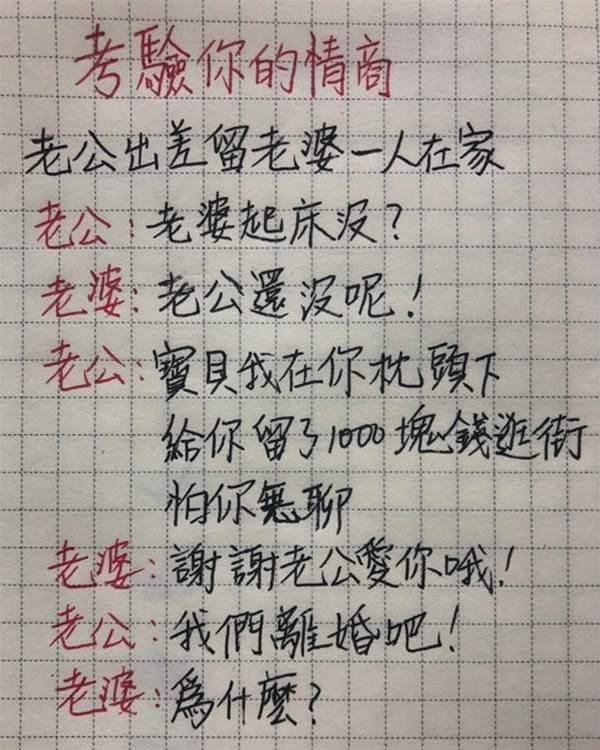 考驗你的情商
老公出差留老婆一人在家
老公:老婆起床沒?
老婆:老公還沒呢!
老公:寶貝我在你枕頭下
給你留了1000塊錢逛街
怕你無聊
老婆:謝謝老公愛你哦!
老公:我們離婚吧!
老婆:爲什麼?